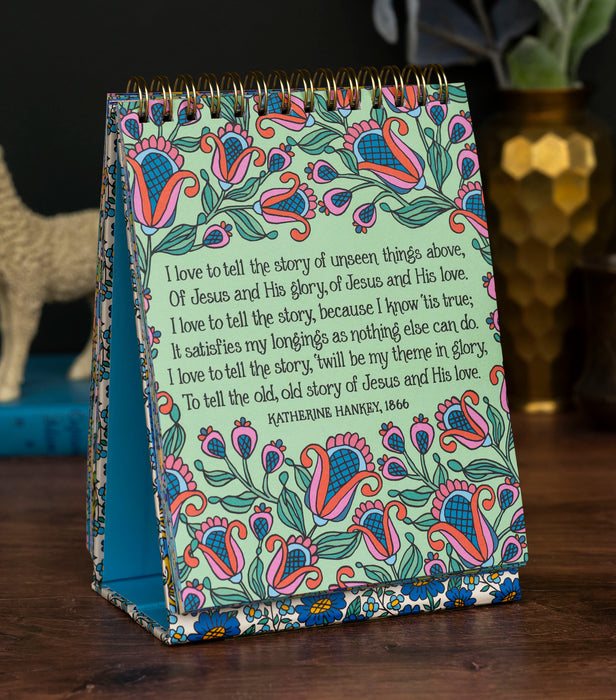 I love to tell the story of unseen things above,
Of Jesus and His glory, of Jesus and His love.
I love to tell the story, because I know 'tis true;
It satisfies my longings as nothing else can do.
I love to tell the story, 'twill be my theme in glory,
To tell the old, old story of Jesus and His love.
KATHERINE HANKEY, 1866